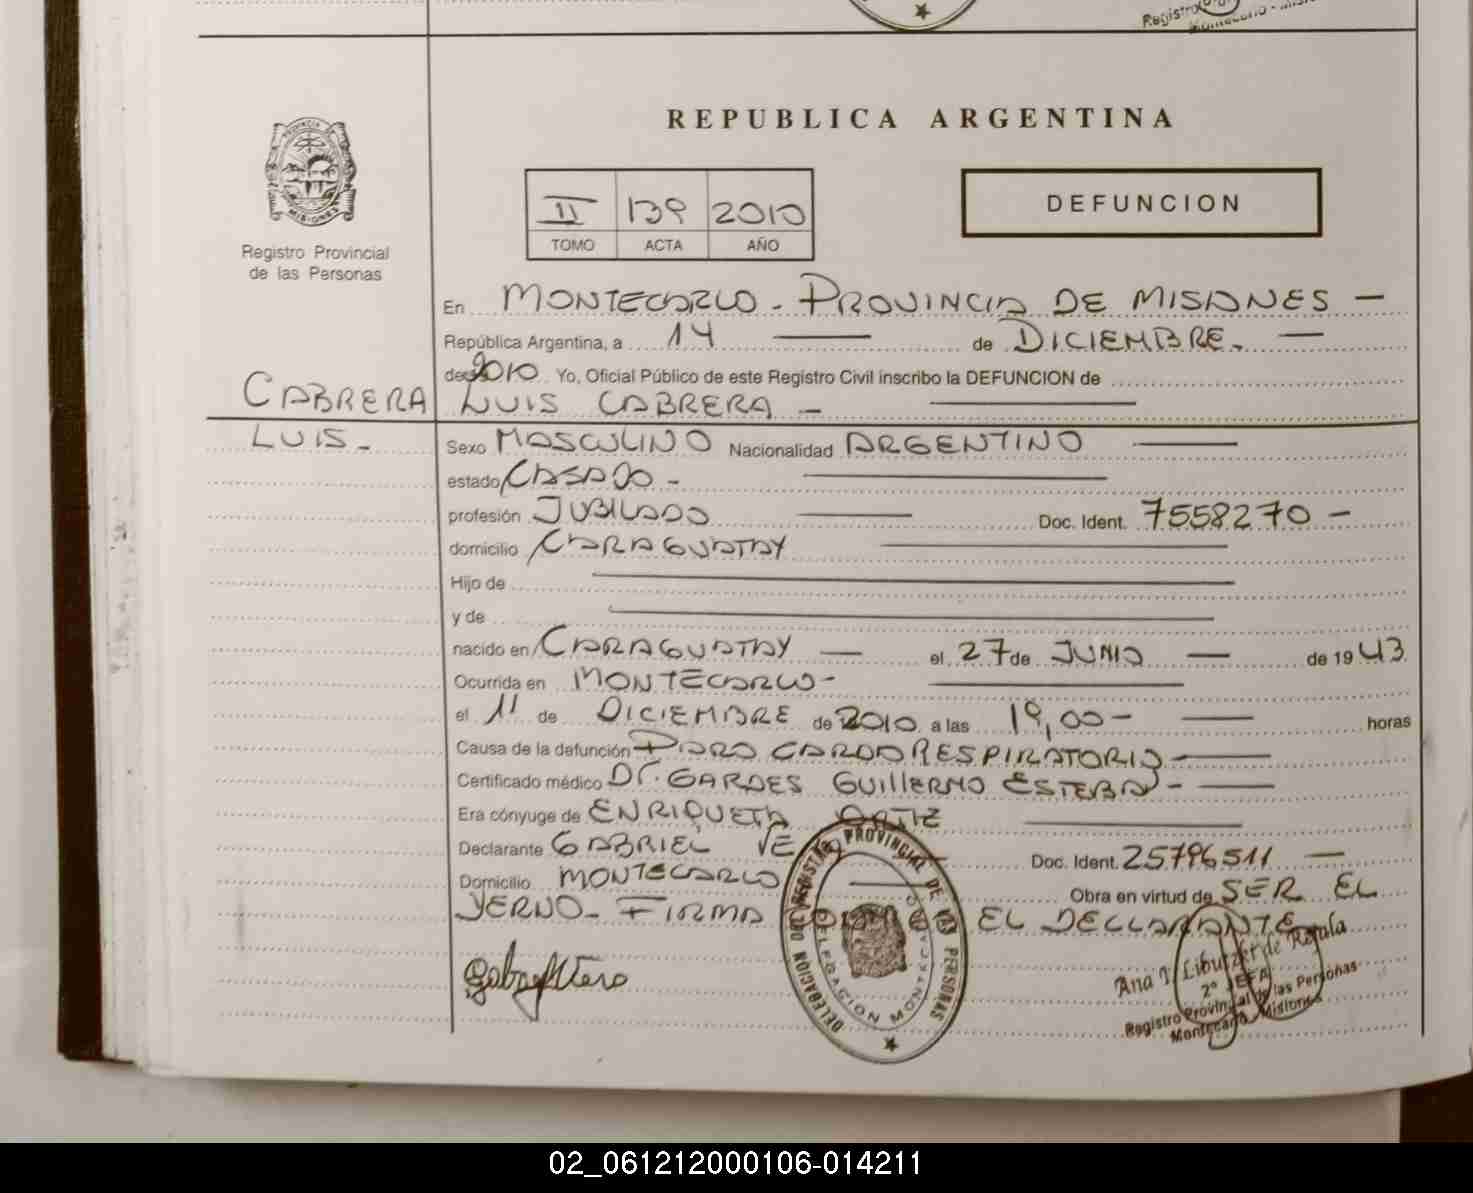 REPUBLICA ARGENTINA
II 139 2010
TOMO ACTA AÑO
DEFUNCION
Registro Provincial
de las Personas
En MONTECARLO - PROVINCIA DE MISIONES -
República Argentina, a 14 de DICIEMBRE -
de 2010 Yo, Oficial Público de este Registro Civil inscribo la DEFUNCION de
CABRERA LUIS CABRERA -
LUIS - Sexo MASCULINO Nacionalidad ARGENTINO
estado CASADO -
profesión JUBILADO Doc. Ident. 7558270 -
domicilio CARAGUATAY
Hijo de
y de
nacido en CARAGUATAY el 27 de JUNIO de 1943
Ocurrida en MONTECARLO -
el 11 de DICIEMBRE de 2010 a las 19,00 - horas
Causa de la defunción PARO CARDORESPIRATORIO -
Certificado médico Dr. GARDES GUILLERMO ESTEBAN -
Era cónyuge de ENRIQUETA ORTIZ
Declarante GABRIEL Doc. Ident. 25796511 -
Domicilio MONTECARLO Obra en virtud de SER EL
YERNO - FIRMA EL DECLARANTE
DELEGACION DEL REGISTRO PROVINCIAL DE LAS PERSONAS
DELEGACION MONTECARLO
2° JEFA
Registro Provincial de las Personas
Montecarlo - Misiones
02_061212000106-014211